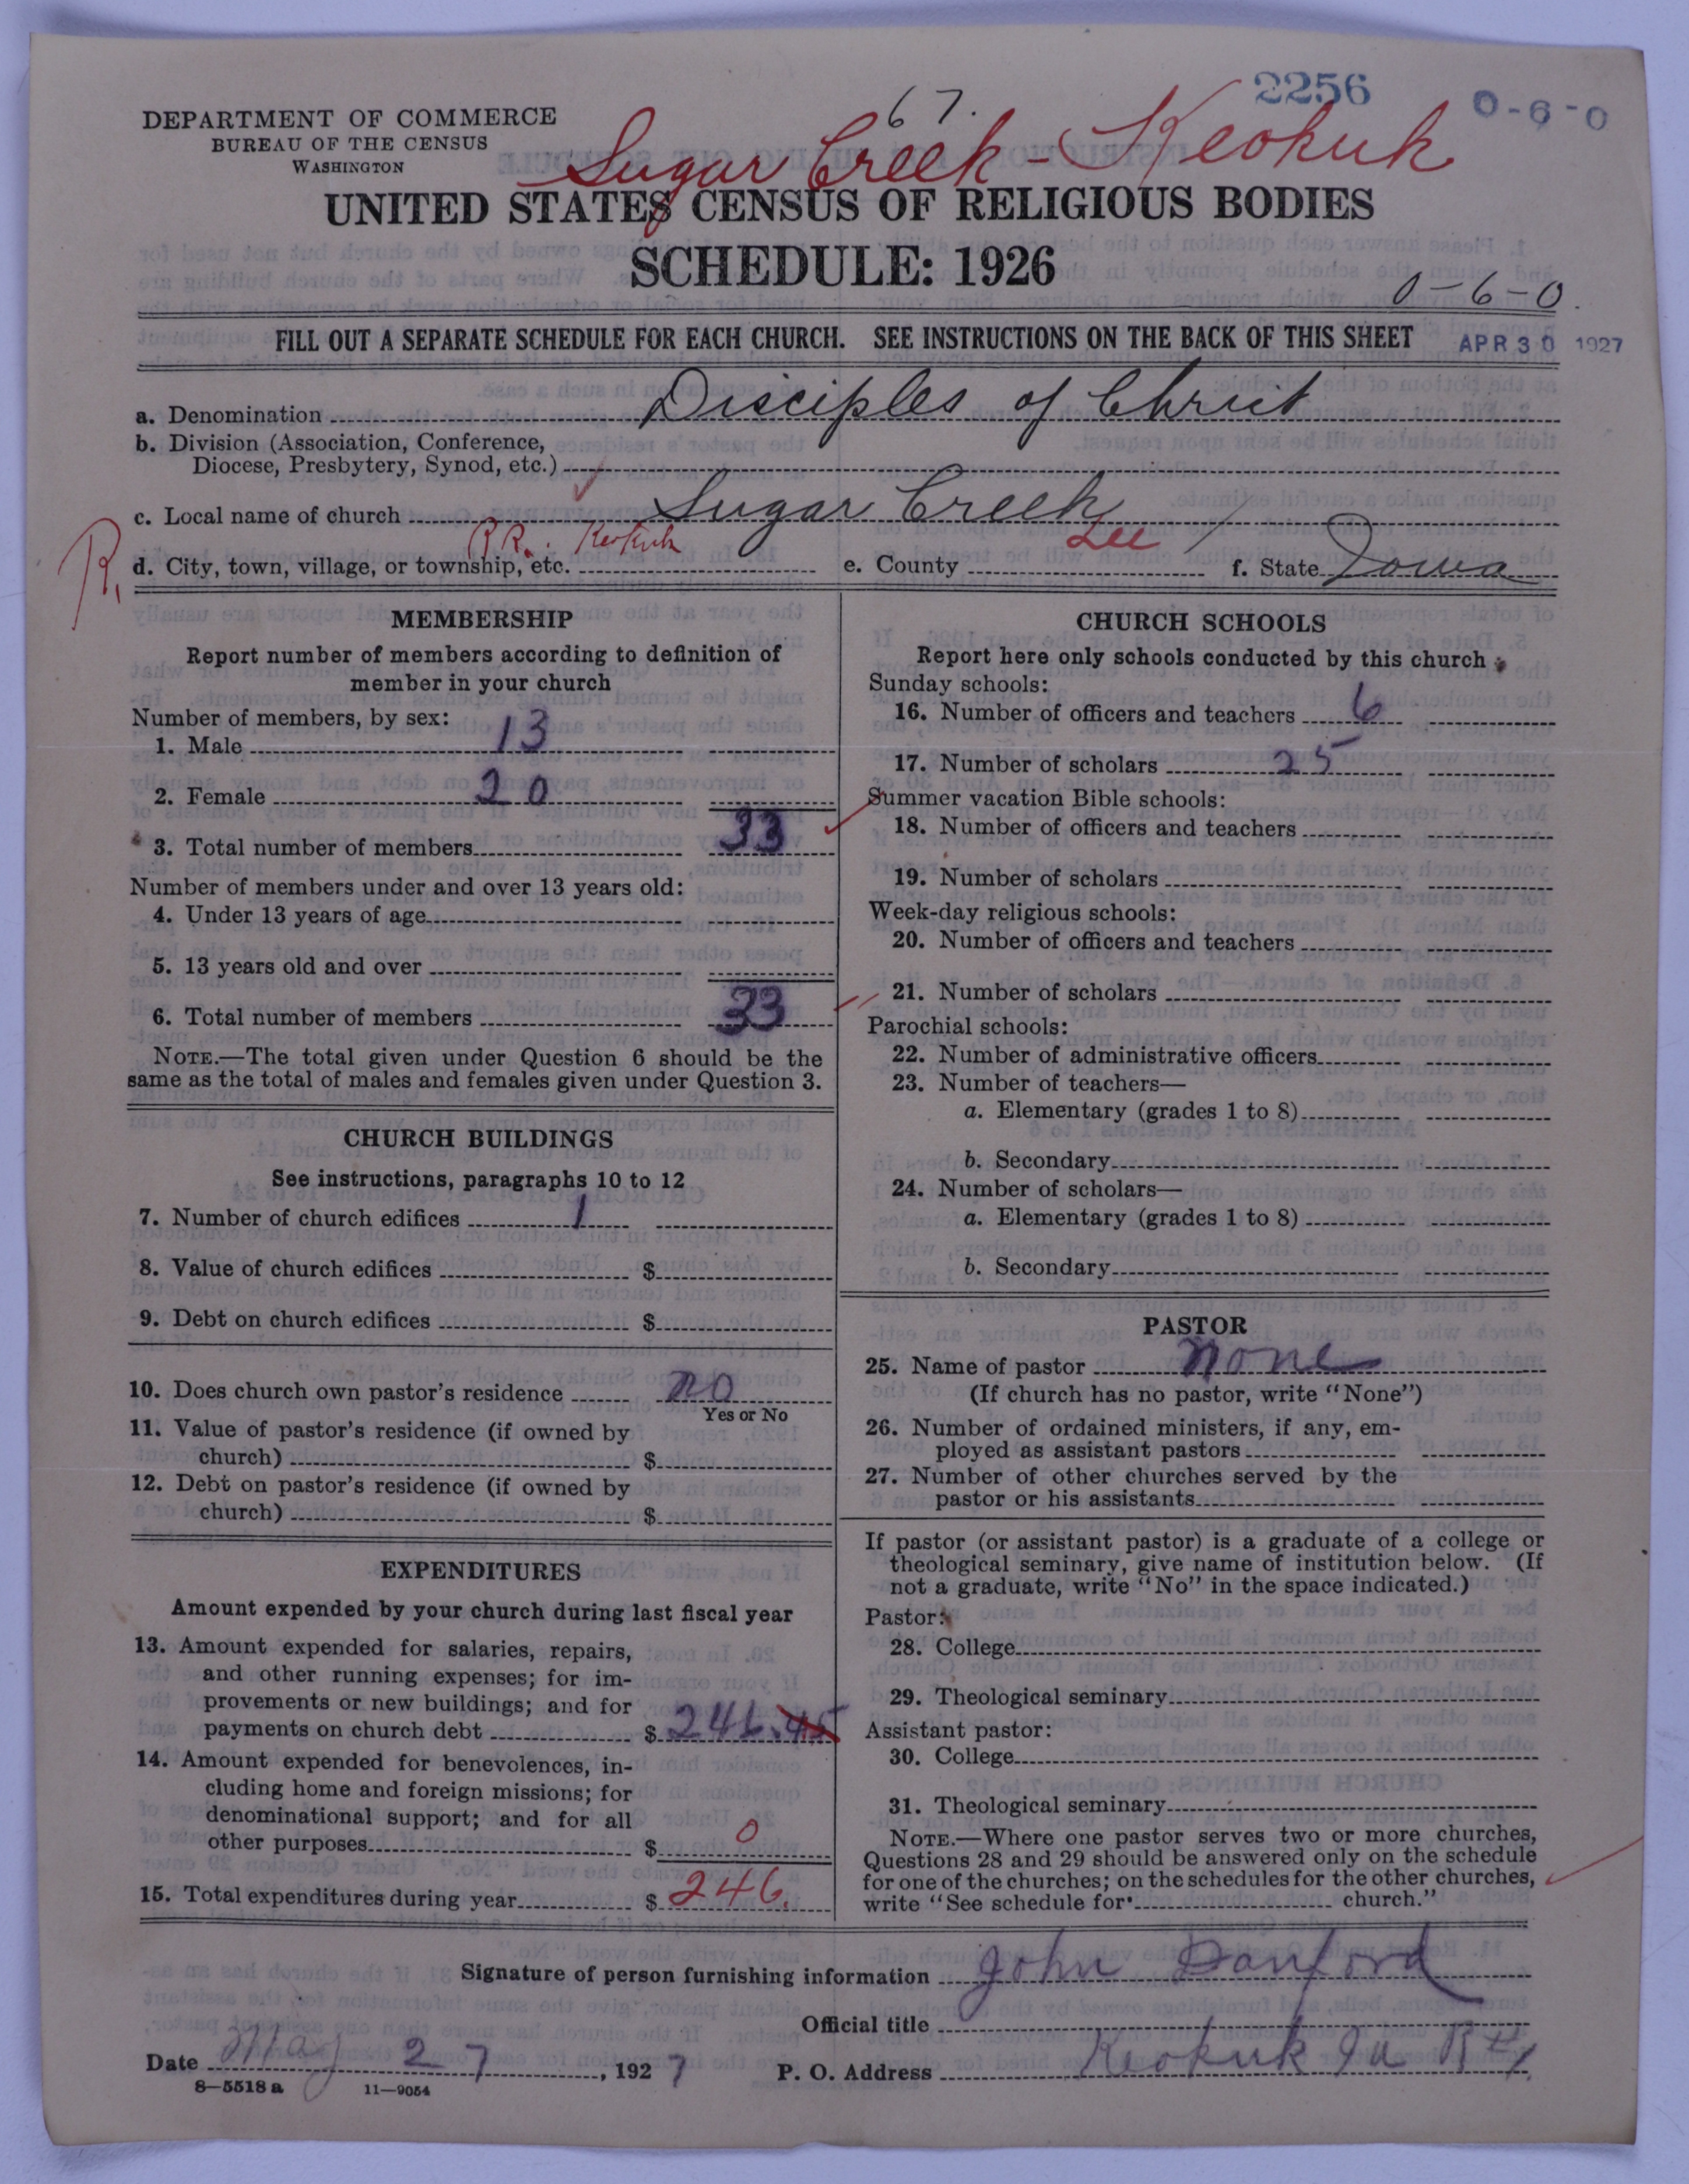 2256
0-6-0
67.
DEPARTMENT OF COMMERCE
BUREAU OF THE CENSUS
WASHINGTON
Sugar Creek - Keokuk
UNITED STATES CENSUS OF RELIGIOUS BODIES
SCHEDULE: 1926
0-6-0.
FILL OUT A SEPARATE SCHEDULE FOR EACH CHURCH. SEE INSTRUCTIONS ON THE BACK OF THIS SHEET
APR 30 1927
a. Denomination Disciples of Christ
b. Division (Association, Conference,
Diocese, Presbytery, Synod, etc.)
c. Local name of church Sugar Creek
R.
d. City, town, village, or township, etc. RR. Keokuk e. County Lee f. State Iowa
MEMBERSHIP
Report number of members according to definition of
member in your church
Number of members, by sex:
1. Male 13
2. Female 20
3. Total number of members 33
Number of members under and over 13 years old:
4. Under 13 years of age
5. 13 years old and over
6. Total number of members 33
NOTE.—The total given under Question 6 should be the
same as the total of males and females given under Question 3.
CHURCH BUILDINGS
See instructions, paragraphs 10 to 12
7. Number of church edifices 1
8. Value of church edifices $
9. Debt on church edifices $
10. Does church own pastor's residence no
Yes or No
11. Value of pastor's residence (if owned by
church) $
12. Debt on pastor's residence (if owned by
church) $
EXPENDITURES
Amount expended by your church during last fiscal year
13. Amount expended for salaries, repairs,
and other running expenses; for im-
provements or new buildings; and for
payments on church debt $ 246.45
14. Amount expended for benevolences, in-
cluding home and foreign missions; for
denominational support; and for all
other purposes $ 0
15. Total expenditures during year $ 246.
CHURCH SCHOOLS
Report here only schools conducted by this church
Sunday schools:
16. Number of officers and teachers 6
17. Number of scholars 25
Summer vacation Bible schools:
18. Number of officers and teachers
19. Number of scholars
Week-day religious schools:
20. Number of officers and teachers
21. Number of scholars
Parochial schools:
22. Number of administrative officers
23. Number of teachers—
a. Elementary (grades 1 to 8)
b. Secondary
24. Number of scholars—
a. Elementary (grades 1 to 8)
b. Secondary
PASTOR
25. Name of pastor none
(If church has no pastor, write "None")
26. Number of ordained ministers, if any, em-
ployed as assistant pastors
27. Number of other churches served by the
pastor or his assistants
If pastor (or assistant pastor) is a graduate of a college or
theological seminary, give name of institution below. (If
not a graduate, write "No" in the space indicated.)
Pastor:
28. College
29. Theological seminary
Assistant pastor:
30. College
31. Theological seminary
NOTE.—Where one pastor serves two or more churches,
Questions 28 and 29 should be answered only on the schedule
for one of the churches; on the schedules for the other churches,
write "See schedule for church."
Signature of person furnishing information John Danford
Official title
Date May 27, 1927 P. O. Address Keokuk Ia
8—5518 a 11—9054